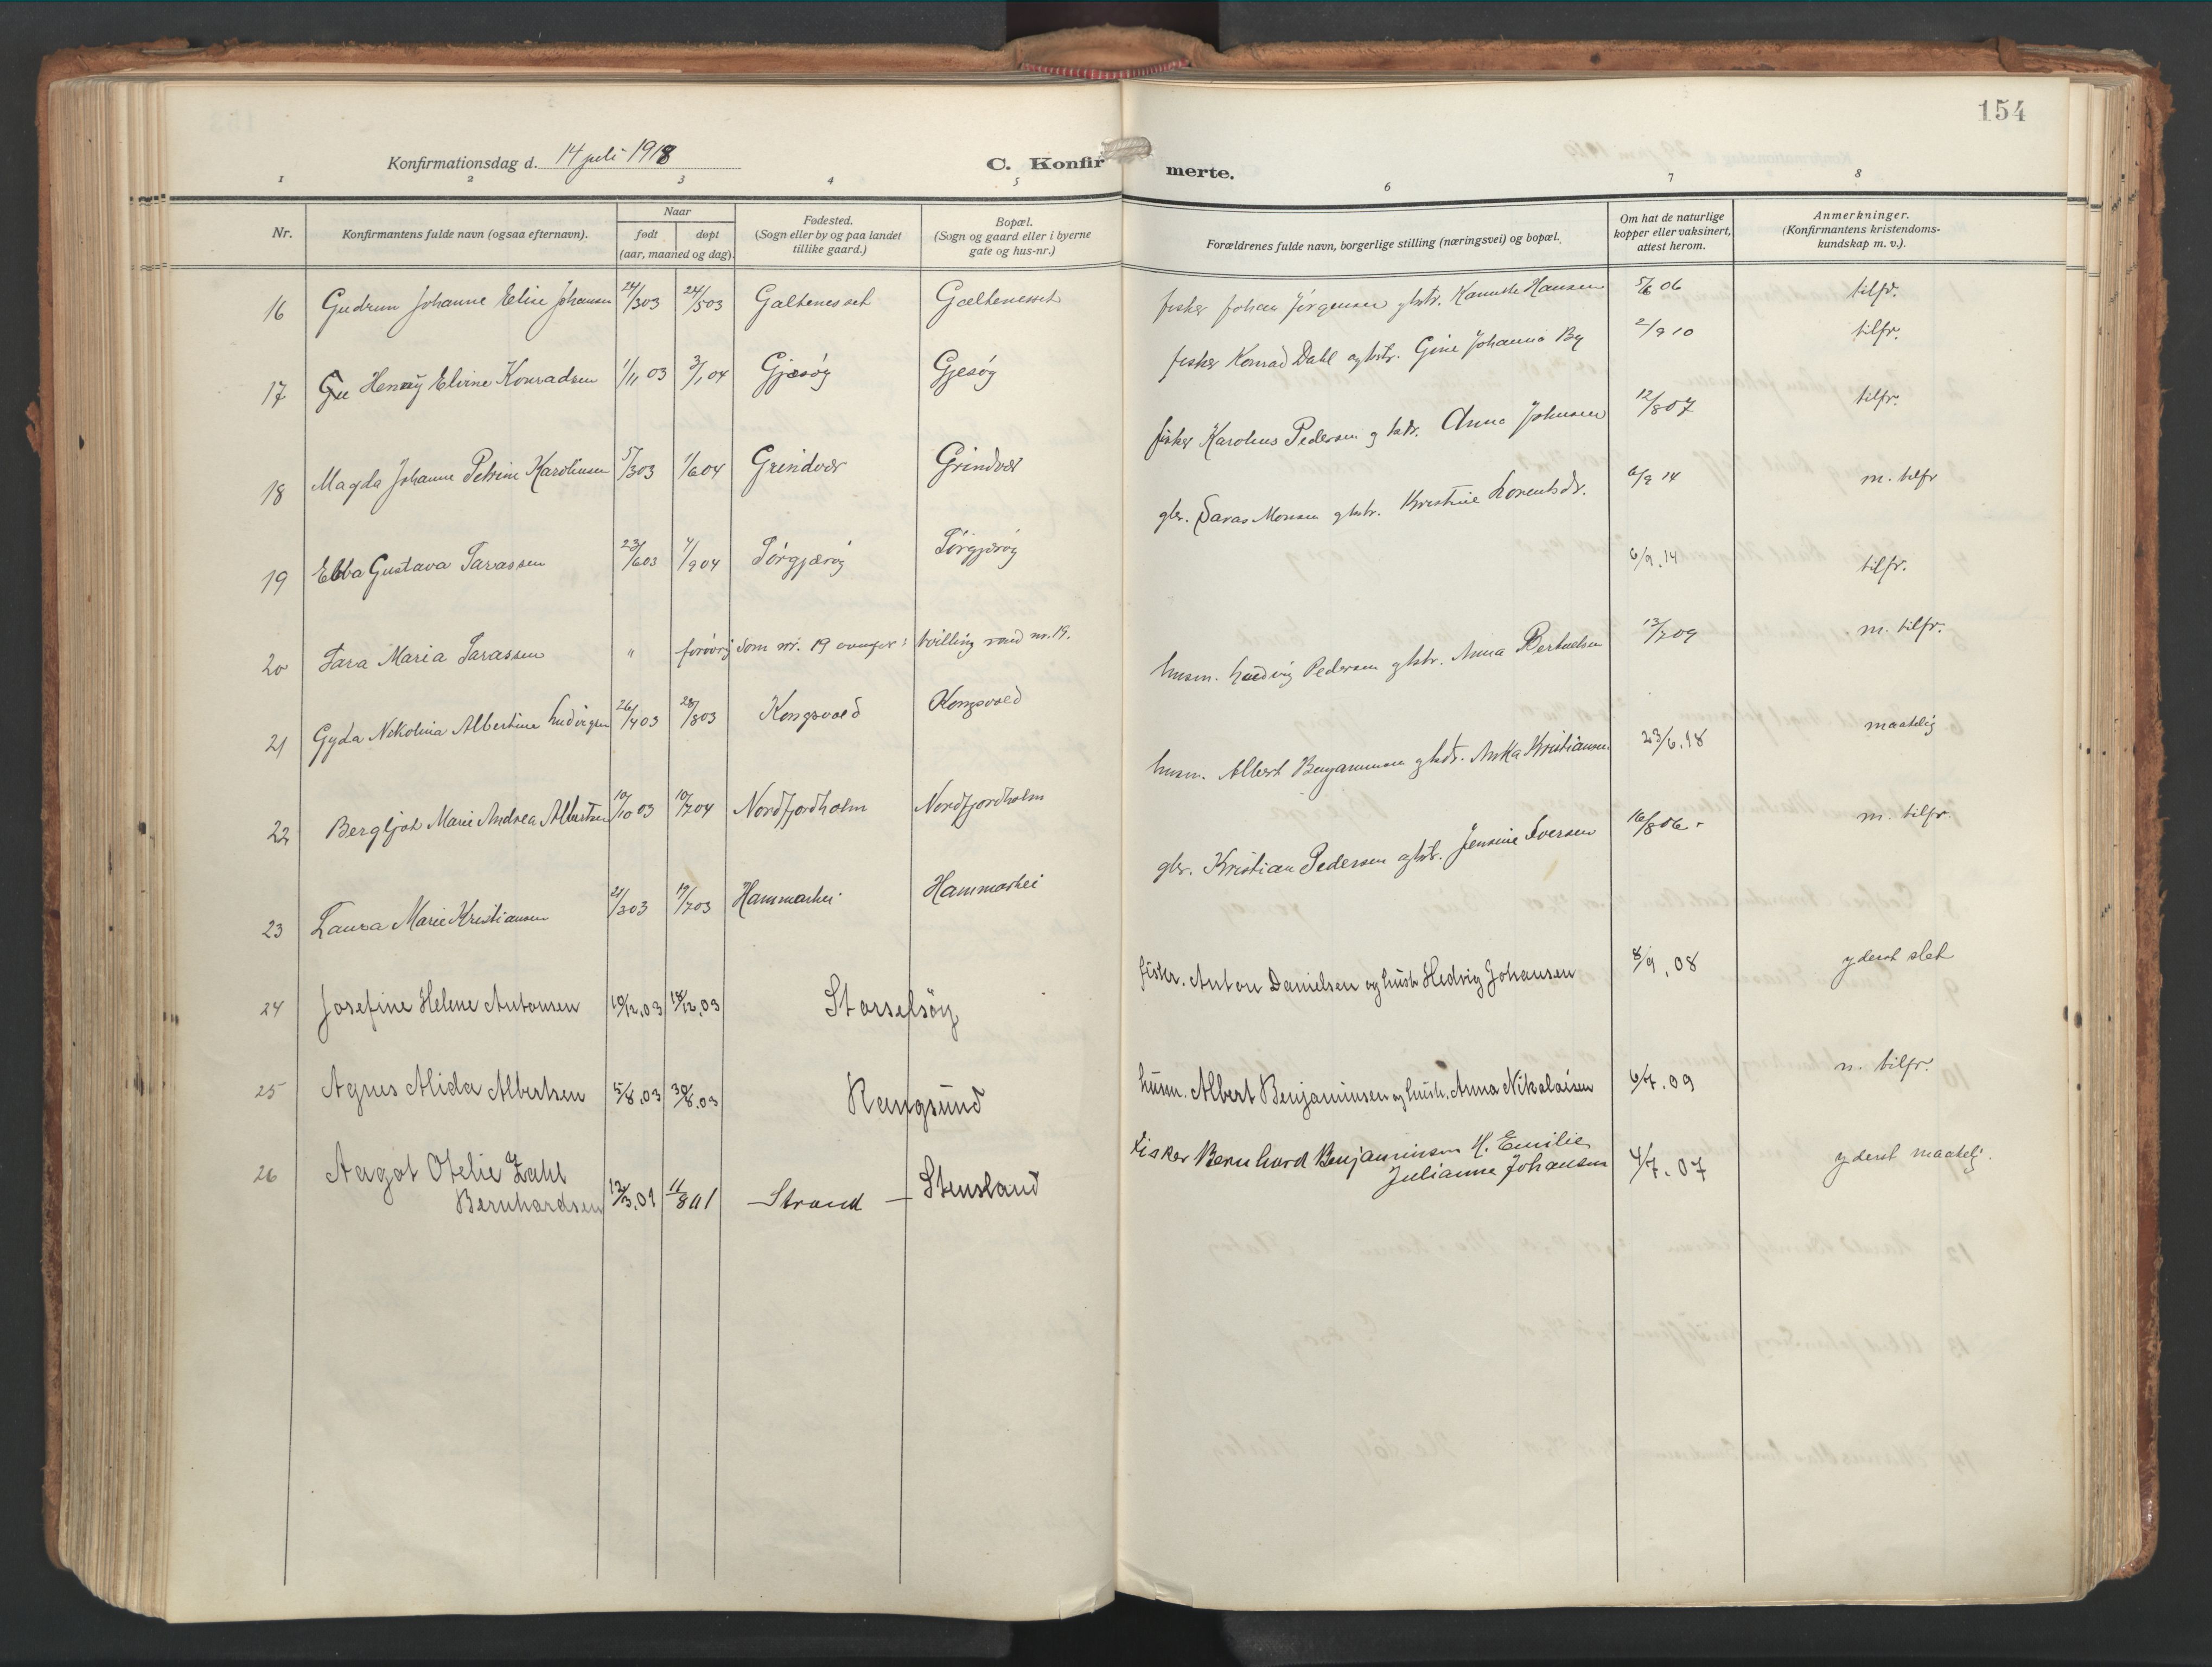 154
Konfirmationsdag d. 14 juli 1918
C. Konfirmerte.
1 2 3 4 5 6 7 8
Nr.
Konfirmantens fulde navn (ogsaa efternavn).
Naar
født
døpt
(aar, maaned og dag).
Fødested.
(Sogn eller by og paa landet
tillike gaard.)
Bopæl.
(Sogn og gaard eller i byerne
gate og hus-nr.)
Forældrenes fulde navn, borgerlige stilling (næringsvei) og bopæl.
Om hat de naturlige
kopper eller vaksinert,
attest herom.
Anmerkninger.
(Konfirmantens kristendoms-
kundskap m. v.).
16 Gudrun Johanne Eline Johansen 24/3 03 24/5 03 Galtenesset Galtenesset fisker Johan Jörgensen Hansen 5/6 06 tilfr.
17 Henny Elvine Konradsen 1/11 03 3/1 04 Gjæsöy Gjesöy fisker Konrad Dahl og hstr. Gine Johanna By 2/9 10 tilfr.
18 Magda Johanne Petrine Karolinsen 5/3 03 1/6 04 Grindvær Grindvær fisker Karolius Pedersen g hstr. Anna Johnsen 12/8 07 tilfr.
19 Ebba Gustava Sarassen 23/6 03 4/9 04 Sörgjæröy Sörgjæröy gbr. Saras Monsen g hstr. Kristine Lorentsdr. 6/9 14 m. tilfr
20 Sara Maria Sarassen " forövrig som nr. 19 tvilling med nr. 19. 6/9. 14 tilfr.
21 Gyda Nikolina Albertine Ludvigsen 26/4 03 28/8 03 Kongsvold Kongsvold husm. Ludvig Pedersen g hstr. Anna Bertnelsen 13/7 09 m. tilfr.
22 Bergljot Marie Andrea Albertsen 10/10 03 10/7 04 Nordfjordholm Nordfjordholm husm. Albert Benjaminsen g hstr. Anka Kristiansen 23/6. 18 maatelig
23 Laura Marie Kristiansen 21/3 03 19/7 03 Hammarhei Hammarhei gbr. Kristian Pedersen g hstr. Jensine Iversen 16/8 06 m. tilfr.
24 Josefine Helene Antonsen 10/12. 03 18/12. 03 Storselsöy fisker. Anton Danielsen og hustr. Hedvig Johansen 8/9. 08 yderst slet
25 Agnes Alida Albertsen 5/8. 03 30/8. 03 Rangsund husm. Albert Benjaminsen og hustr. Anna Nikolaisen 6/7. 09 n. tilfr.
26 Aagot Otelie Zahl
Bernhardsen 12/3. 01 11/8 01 Strand — Stensland Fisker Bernhard Benjaminsen H. Emilie
Julianne Johansen 4/7. 07 yderst maatelig.